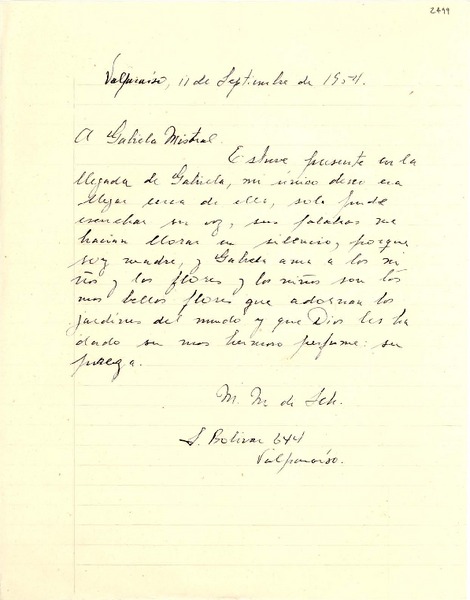 2499
Valparaíso, 11 de Septiembre de 1954.
A Gabriela Mistral.
Estuve presente en la
llegada de Gabriela, mi único deseo era
llegar cerca de ella, solo pude
escuchar su voz, sus palabras me
hacían llorar en silencio, porque
soy madre, y Gabriela ama a los ni
ños y las flores y los niños son las
mas bellas flores que adornan los
jardines del mundo y que Dios les ha
dado su mas hermoso perfume: su
pureza.
M. M. de Sch.
S. Bolivar 644
Valparaíso.